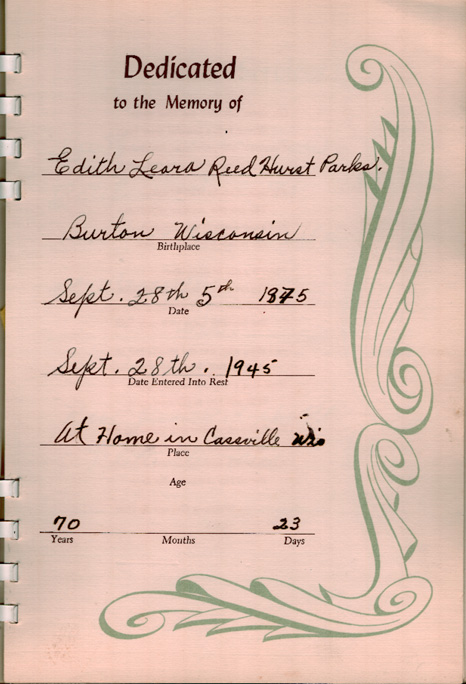 Dedicated
to the Memory of
Edith Leora Reed Hurst Parks.
Burton Wisconsin
Birthplace
Sept. 28th 5th 1875
Date
Sept. 28th. 1945
Date Entered Into Rest
At Home in Cassville Wis
Place
Age
70 23
Years Months Days